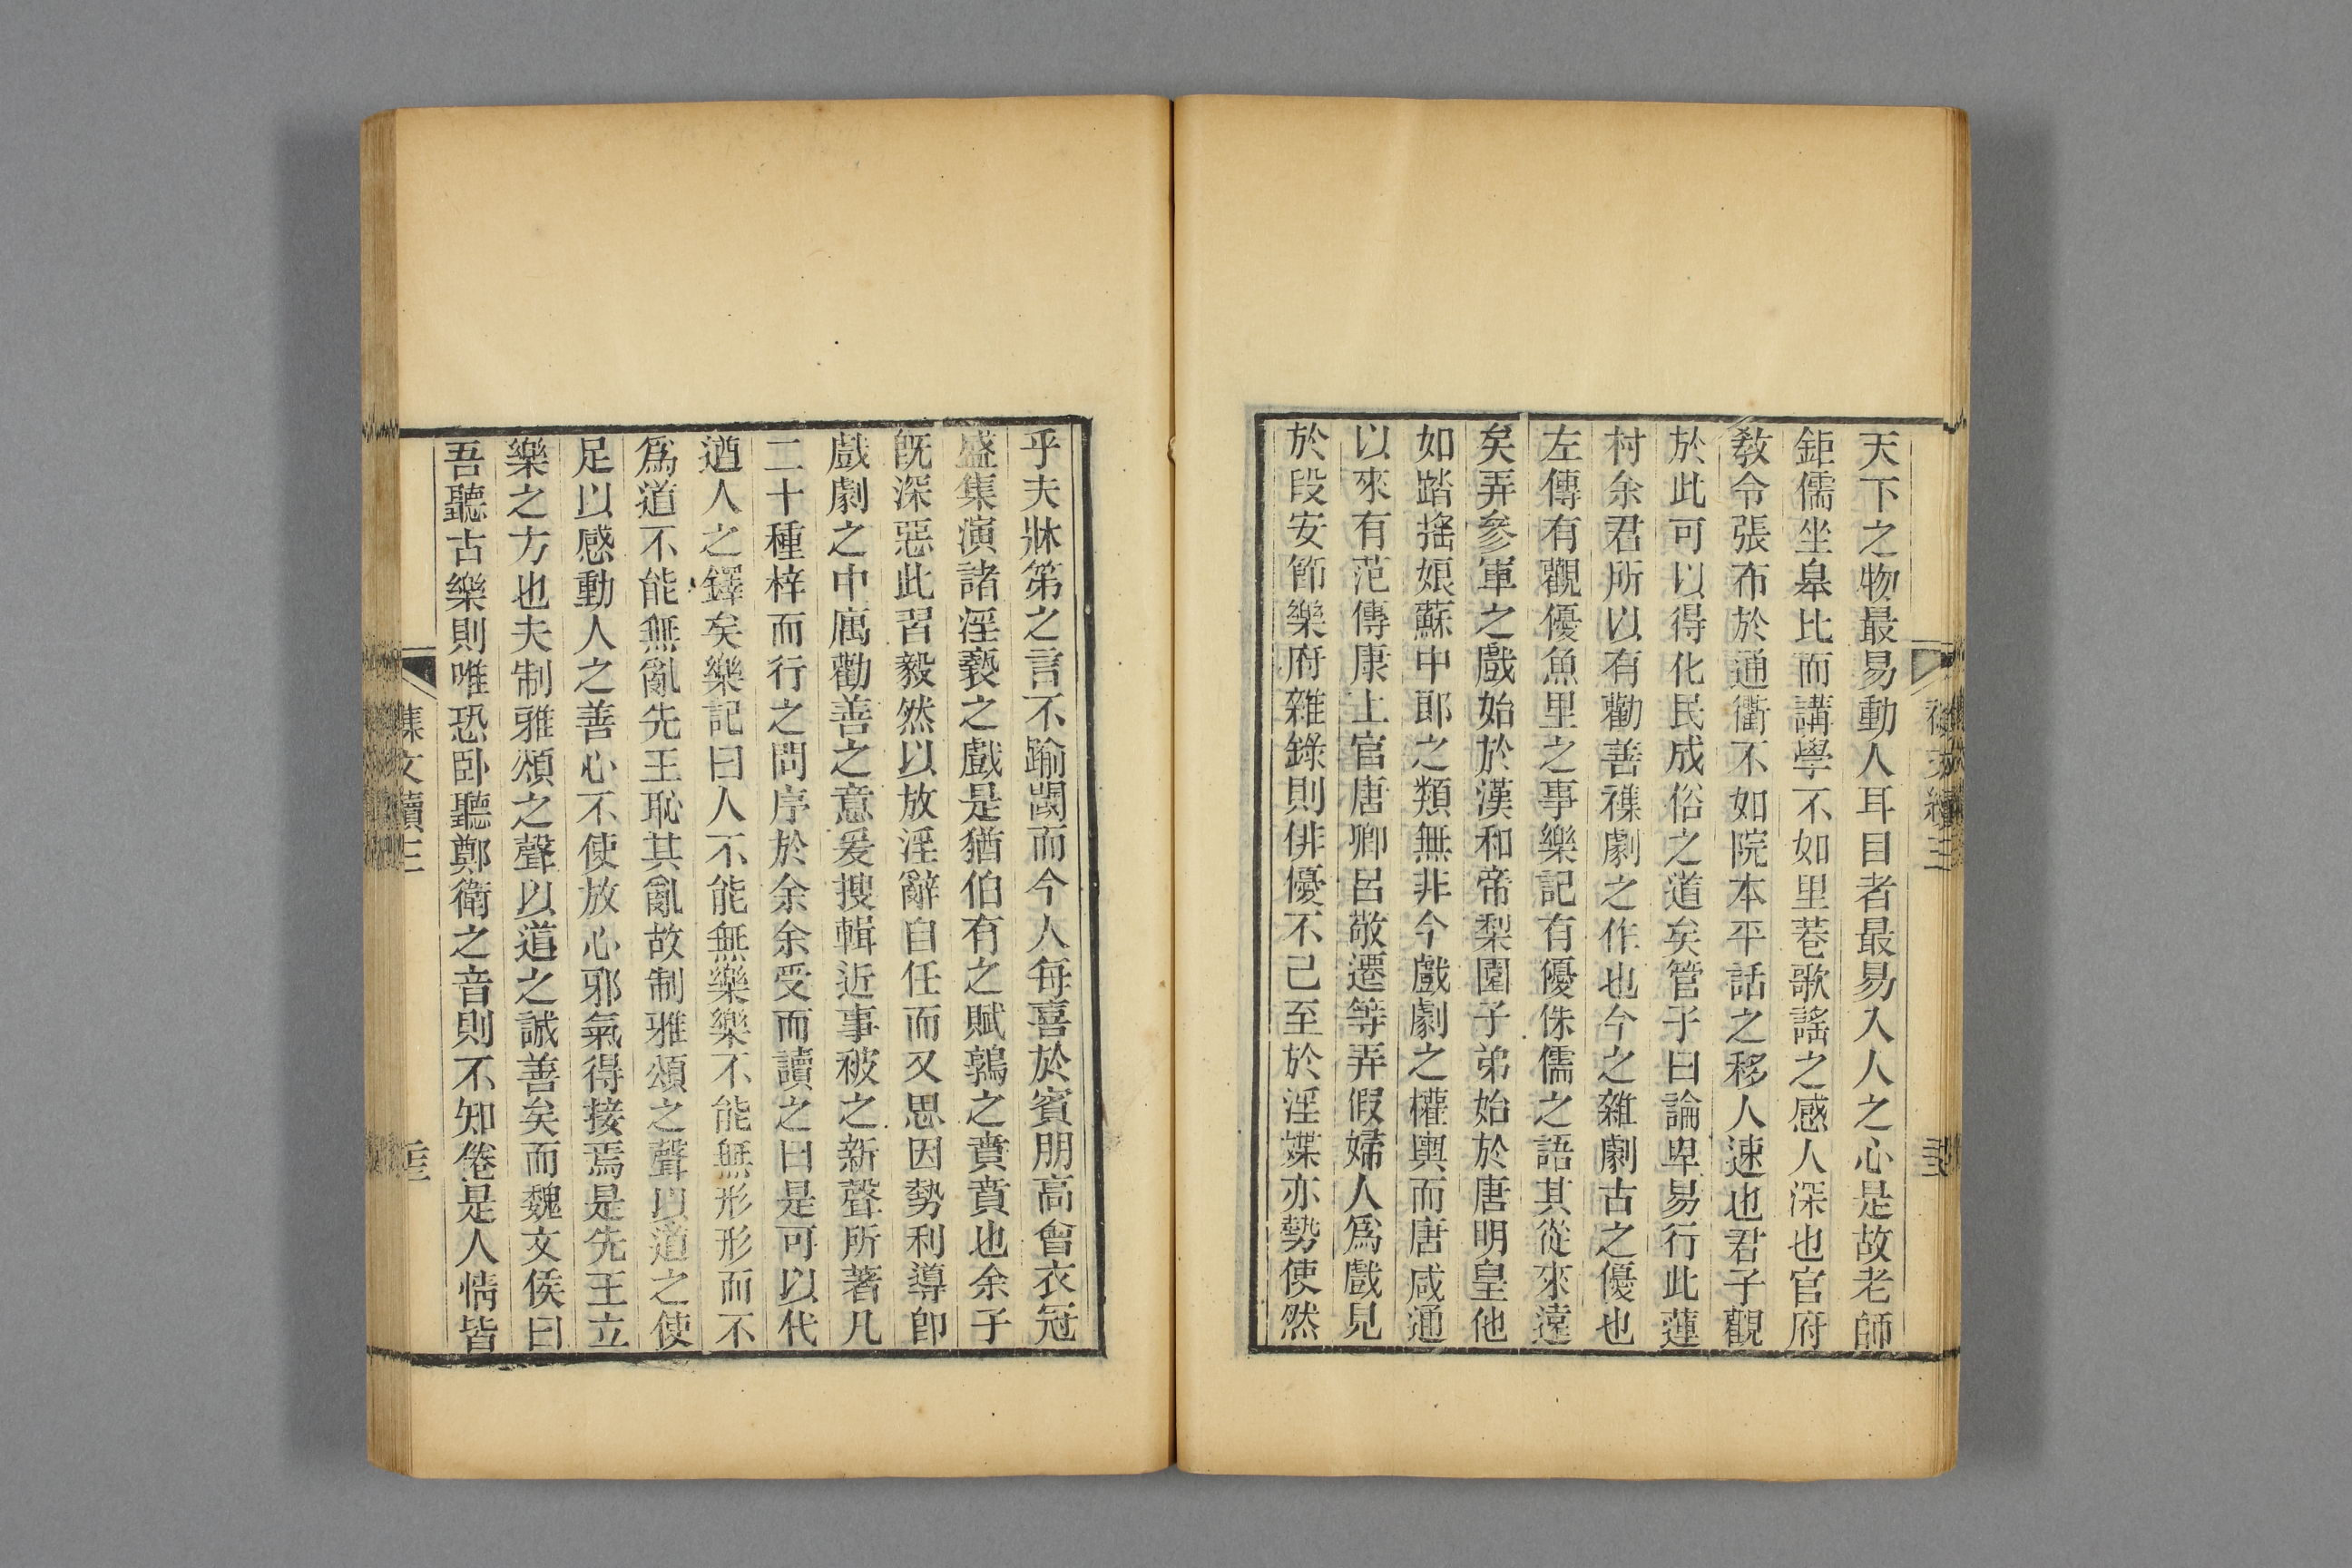 天下之物最易動人耳目者最易入人之心是故老師
鉅儒坐皋比而講學不如里巷歌謠之感人深也官府
敎令張布於通衢不如院本平話之移人速也君子觀
於此可以得化民成俗之道矣管子曰論卑易行此蓮
村余君所以有勸善襍劇之作也今之雜劇古之優也
左傳有觀優魚里之事樂記有優侏儒之語其從來遠
矣弄參軍之戲始於漢和帝梨園子弟始於唐明皇他
如踏搖娘蘇中郎之類無非今戲劇之權輿而唐咸通
以來有范傳康上官唐卿呂敬遷等弄假婦人爲戲見
於段安節樂府雜錄則俳優不已至於淫媟亦勢使然
乎夫牀笫之言不踰閾而今人每喜於賓朋高會衣冠
盛集演諸淫褻之戲是猶伯有之賦鶉之賁賁也余子
旣深惡此習毅然以放淫辭自任而又思因勢利導卽
戲劇之中寓勸善之意爰搜輯近事被之新聲所著凡
二十種梓而行之問序於余余受而讀之曰是可以代
遒人之鐸矣樂記曰人不能無樂樂不能無形形而不
爲道不能無亂先王恥其亂故制雅頌之聲以道之使
足以感動人之善心不使放心邪氣得接焉是先王立
樂之方也夫制雅頌之聲以道之誠善矣而魏文侯曰
吾聽古樂則唯恐卧聽鄭衛之音則不知倦是人情皆